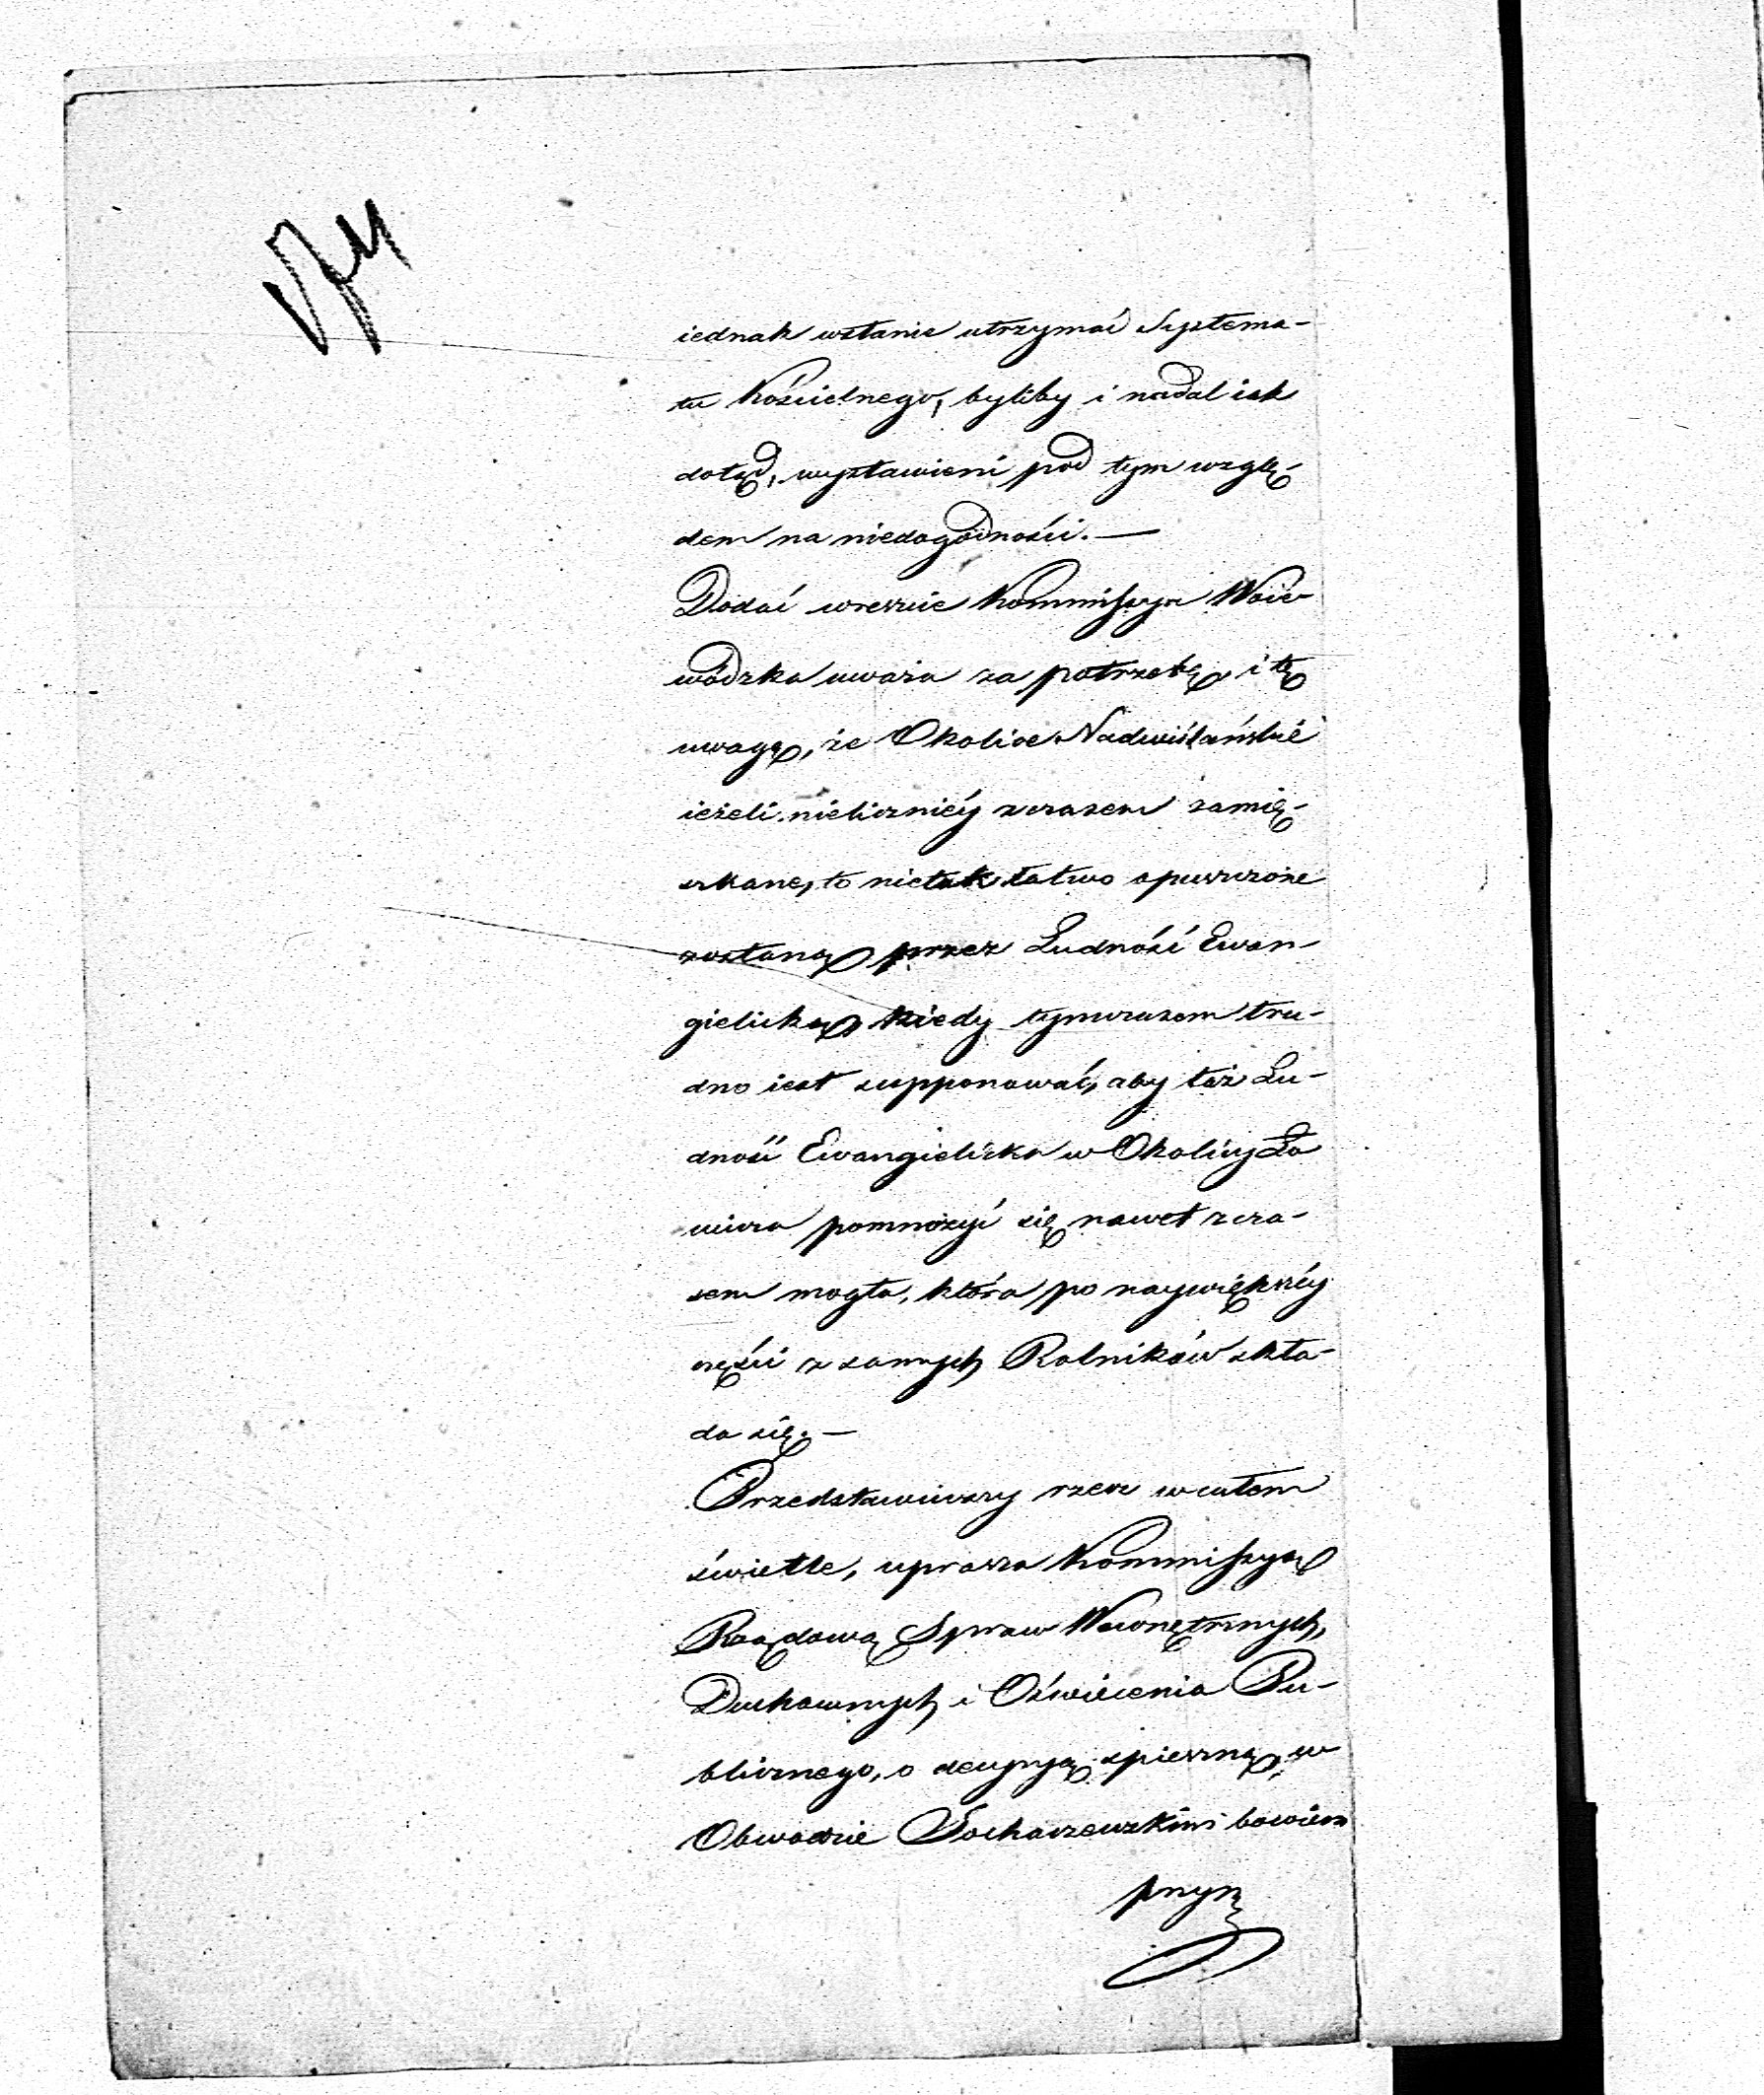 iednak wstanie utrzymać Systema-
tu Kościelnego, byliby i nadal iak
dotąd, wystawieni pod tym wzglę-
dem na niedogodności. —
Dodać wreszcie Kommissya Woie-
wódzka uważa za potrzebę, i tę
uwagę, że Okolice Nadwiślańskié
ieżeli nieliczniéy zczasem zamie-
szkane, to nietak łatwo opuszczone
zostaną przez Ludność Ewan-
gielicką, kiedy tymczasem tru-
dno iest supponować, aby taż Lu-
dność Ewangielicka w Okolicy Ło
wicza pomnożyć się nawet zcza-
sem mogła, która po naywiększéy
części z samych Rolników skła-
da się. —
Przedstawiwszy rzecz w całem
świetle, uprasza Kommissyą
Rządową Spraw Wewnętrznych,
Duchownych i Oświecenia Pu-
blicznego, o decyzyą spieszną, w
Obwodzie Sochaczewskim bowiem
przy